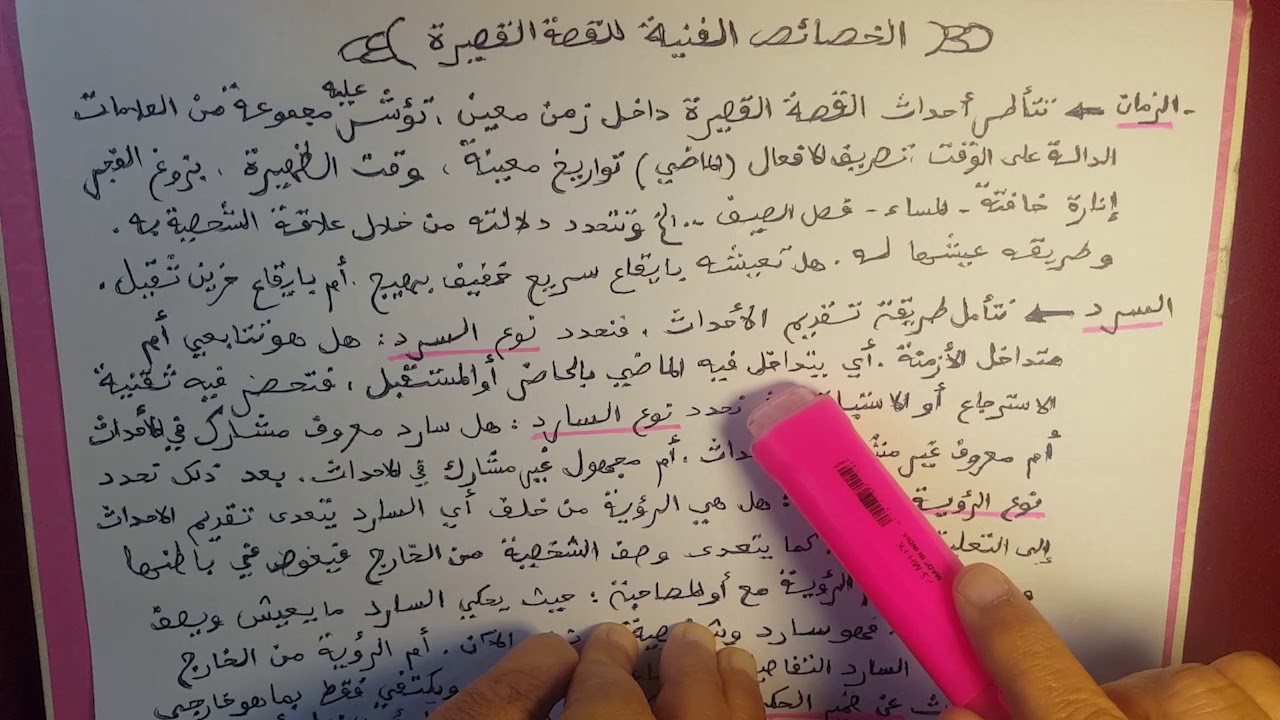 الخصائص الفنية للقصة القصيرة
- الزمان ← تتأطر أحداث القصة القصيرة داخل زمن معين، تؤشر عليه مجموعة من العلامات
الدالة على الوقت، تصريف الافعال (الماضي) تواريخ معينة، وقت الظهيرة، بزوغ الفجر
إنارة خافتة - المساء - فصل الصيف ... الخ وتتحدد دلالته من خلال علاقة الشخصية به.
وطريقه عيشها له. هل تعيشه بايقاع سريع خفيف بهيج. أم بايقاع حزين ثقيل.
السرد ← نتأمل طريقة تقديم الأحداث، فنحدد نوع السرد: هل هو تتابعي أم
متداخل الأزمنة. أي يتداخل فيه الماضي بالحاضر أو المستقبل، فتحضر فيه تقنية
الاسترجاع أو نحدد نوع السارد: هل سارد معروف مشارك في الأحداث
أم معروف غير أم مجهول غير مشارك في الاحداث. بعد ذلك نحدد
نوع الرؤية : هل هي الرؤية من خلف أي السارد يتعدى تقديم الاحداث
إلى كما يتعدى وصف الشخصية من الخارج فيغوص في باطنها
الرؤية مع أو المصاحبة: حيث يحكي السارد ما يعيش ويصف
فهو سارد المكان. أم الرؤية من الخارج
السارد ويكتفي فقط بما هو خارجي
عن ضمير
MADE IN INDIA